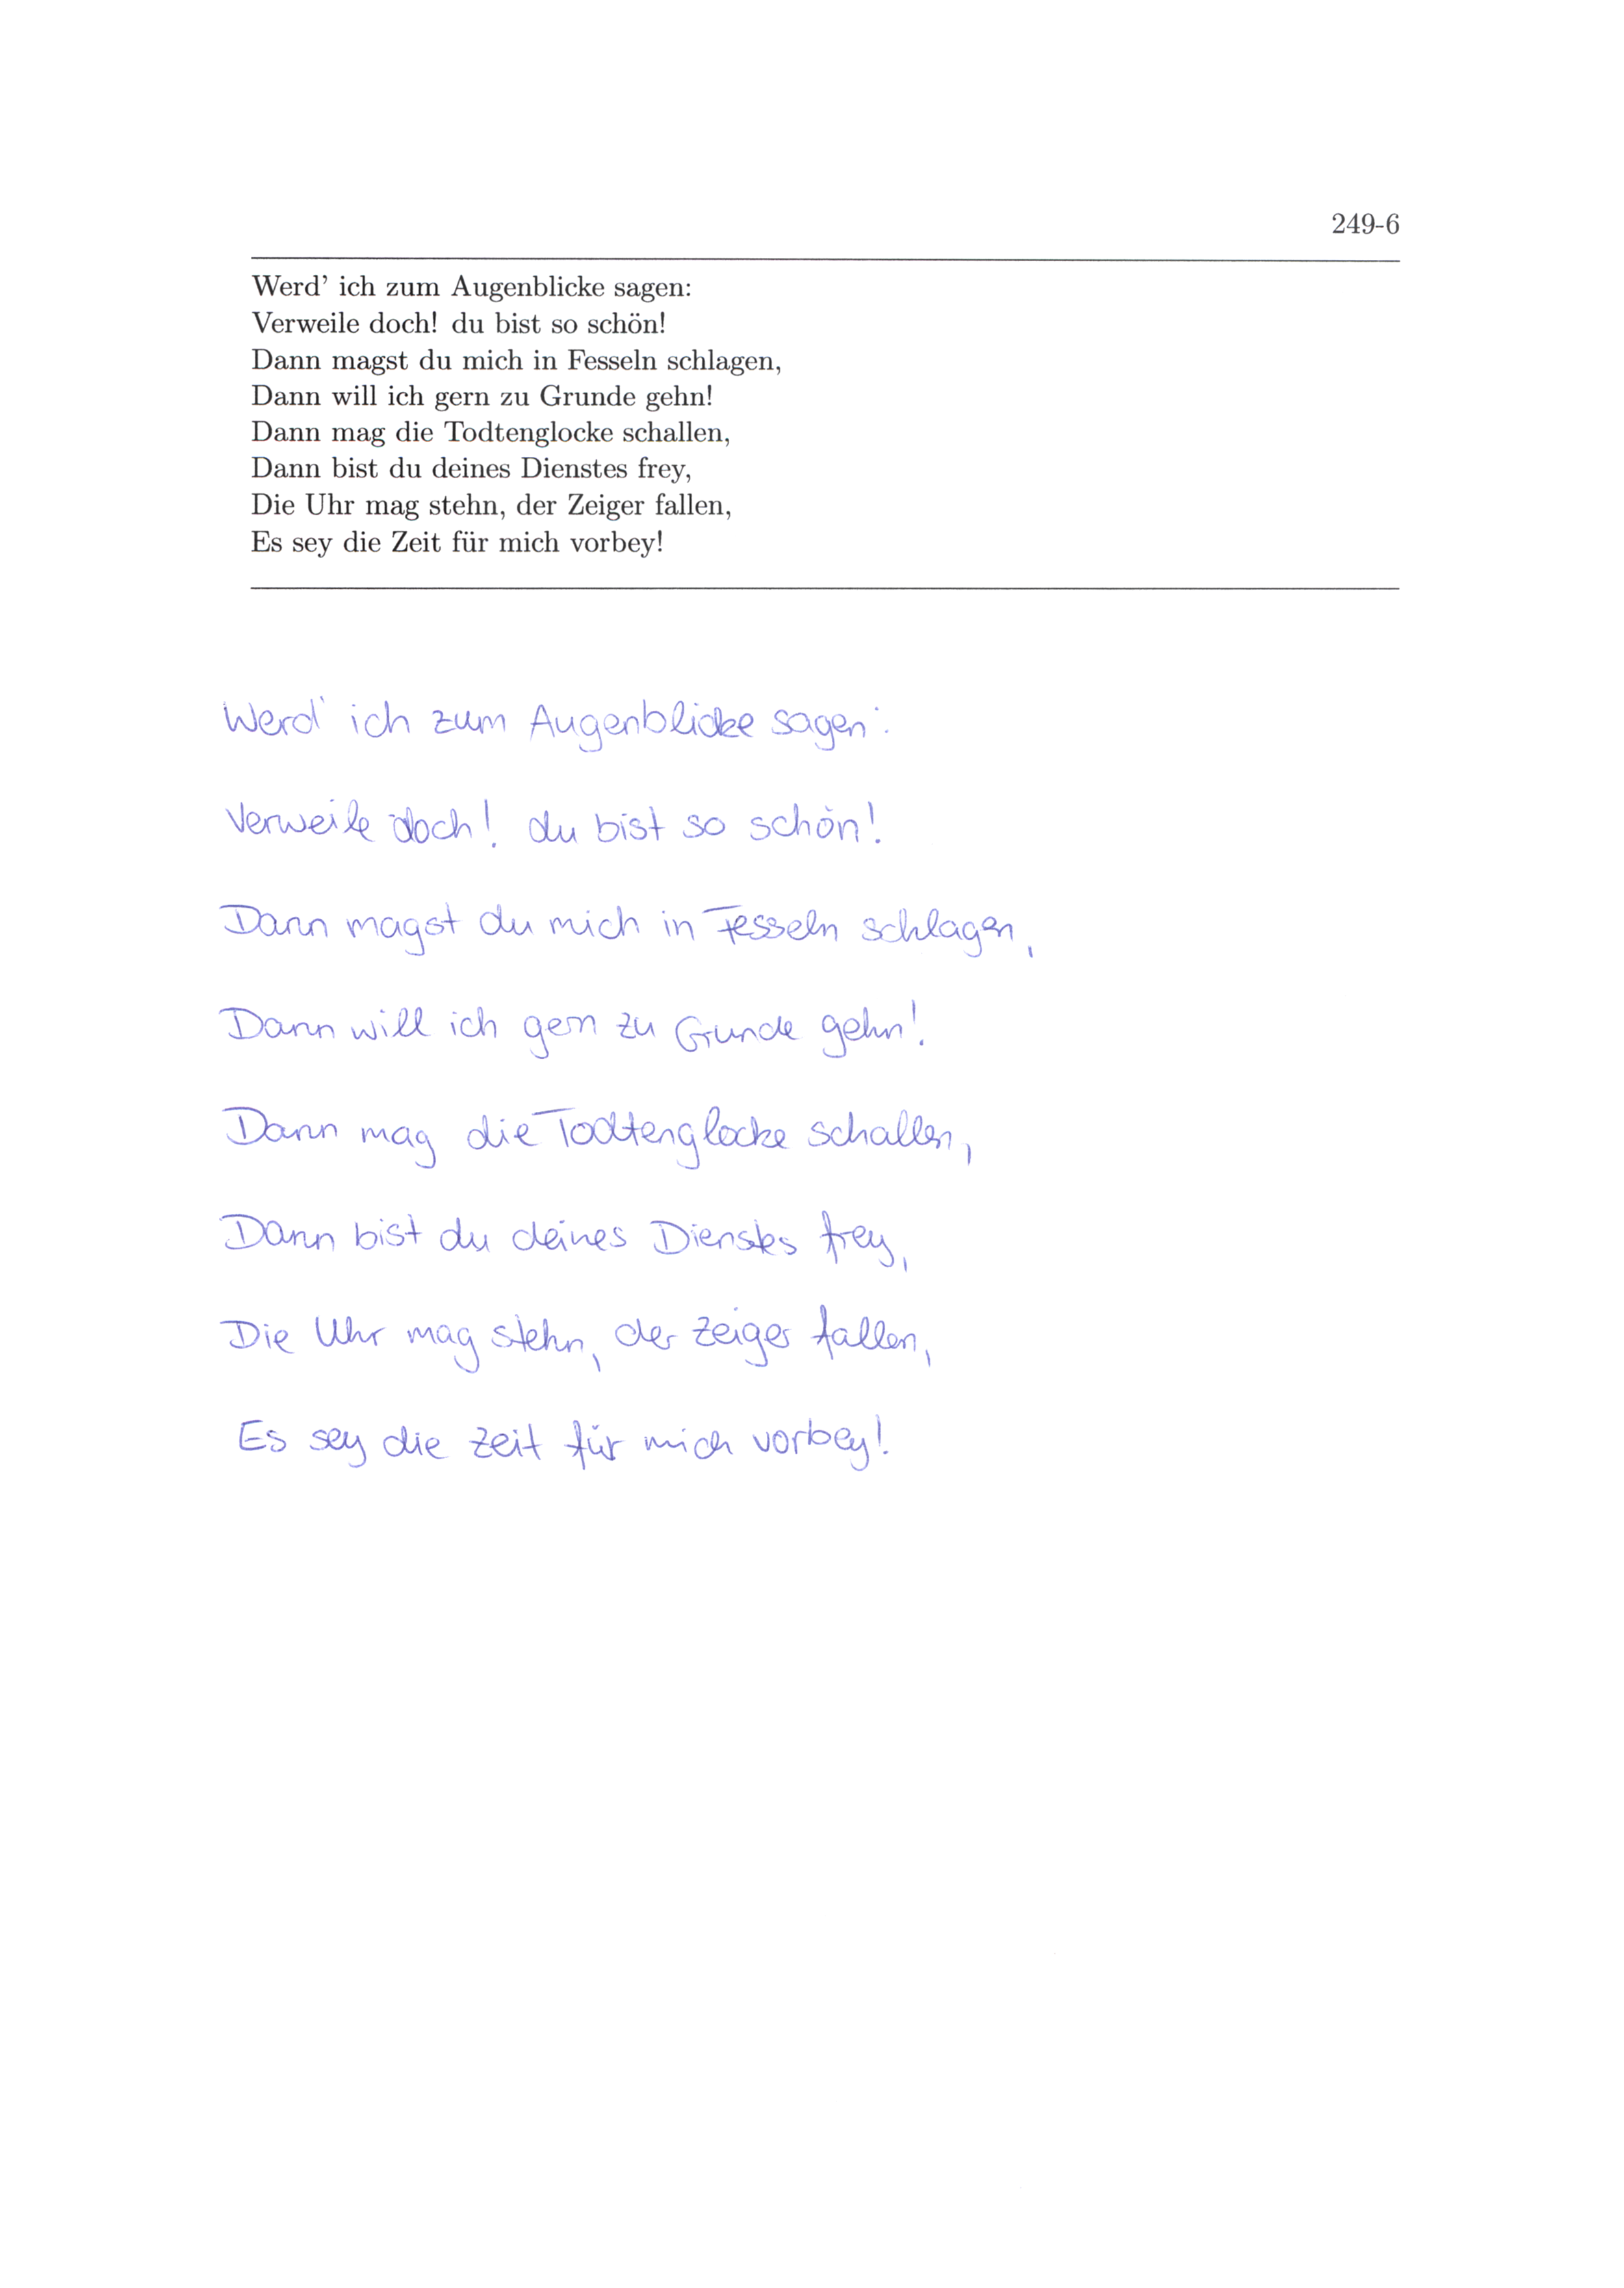 249-6
Werd' ich zum Augenblicke sagen:
Verweile doch! du bist so schön!
Dann magst du mich in Fesseln schlagen,
Dann will ich gern zu Grunde gehn!
Dann mag die Todtenglocke schallen,
Dann bist du deines Dienstes frey,
Die Uhr mag stehn, der Zeiger fallen,
Es sey die Zeit für mich vorbey!
Werd' ich zum Augenblicke sagen:
Verweile doch! du bist so schön!
Dann magst du mich in Fesseln schlagen,
Dann will ich gern zu Grunde gehn!
Dann mag die Todtenglocke schallen,
Dann bist du deines Dienstes frey,
Die Uhr mag stehn, der Zeiger fallen,
Es sey die Zeit für mich vorbey!